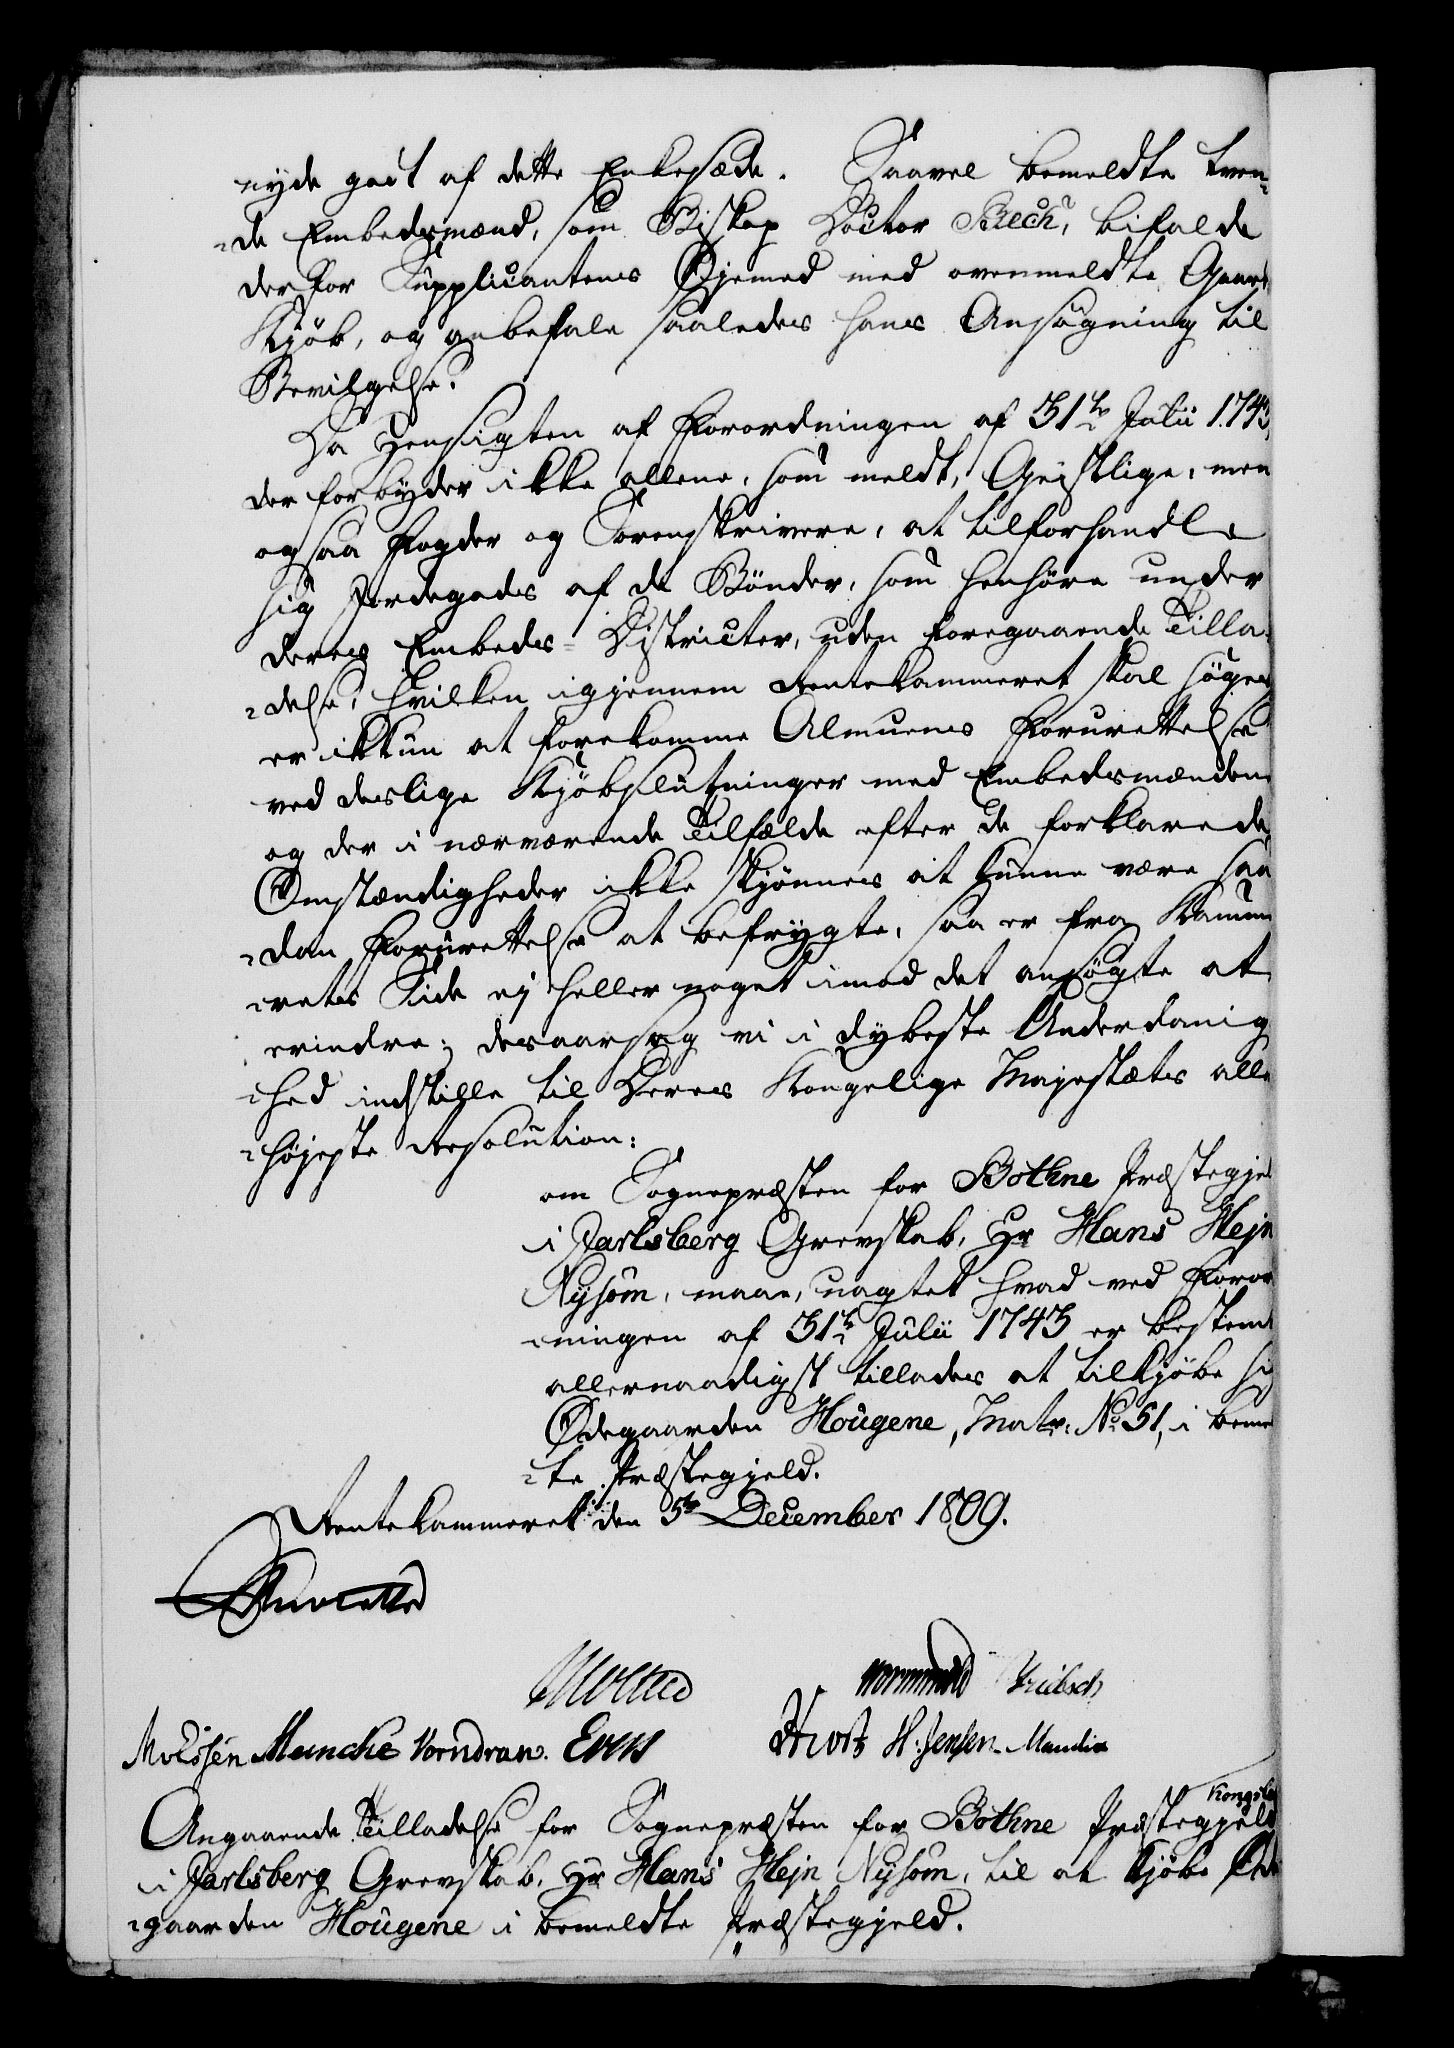 nyde godt af dette Enkesæde. Saavel bemeldte tven-
-de Embedsmænd, som Biskop Doctor Bech, bifalde
derfor Supplicantens Øjemed med ovenmeldte Gaard
Kjöb, og anbefale saaledes hans Ansøgning til
Bevilgelse.
Da Hensigten af Forordningen af 31te Julii 1743,
der forbyder ikke allene, som meldt, Geistlige, men
ogsaa Fogder og Sorenskrivere, at tilforhandle
sig Jordegods af de Bönder, som henhöre under
deres Embeds-Districter, uden foregaaende Tilla-
-delse, hvilken igjennem Rentekammeret skal söges
er ikkun at forekomme Almuens Forurettelse
ved deslige Kjöbslutninger med Embedsmændene
og der i nærværende Tilfælde efter de forklarede
Omstændigheder ikke skjönnes at kunne være saa
-dan Forurettelse at befrygte, saa er fra Kamme
-rets Side ej heller noget imod det ansøgte at
erindre; desaarsag vi i dybeste Underdanig
-hed indstille til Deres Kongelige Majestæts aller
-höjeste Resolution:
om Sognepræsten for Bothne Præstegjel
i Jarlsberg Grevskab, Hr Hans Hejn
Nysom, maae, uagtet hvad ved Foror
-ningen af 31te Julii 1743 er bestemt
allernaadigst tillades at tilkjöbe sig
Ødegaarden Hougene, Matr: No 51, i beme
-te Præstegjeld.
Rentekammeret den 5te December 1809.
Moltke
Wormskiold
Munthe Vorndran. Evers
H: Jensen. Mandix
Kongsb
Angaaende Tilladelse for Sognepræsten for Bothne Præstegjeld
i Jarlsberg Grevskab, Hr Hans Hejn Nysom, til at kjöbe Øde
-gaarden Hougene i bemeldte Præstegjeld.